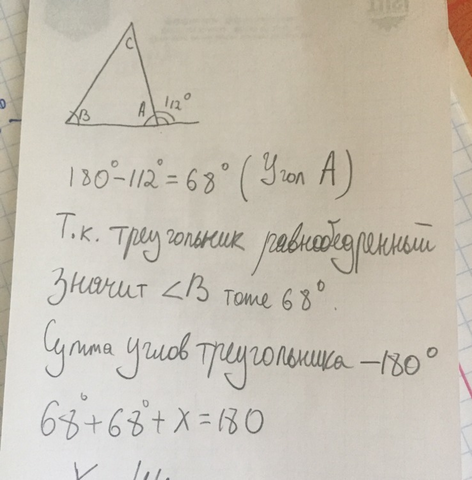 C
B A 112°
180° - 112° = 68° (Угол A)
Т.к. треугольник равнобедренный
значит ∠B тоже 68°.
Сумма углов треугольника - 180°
68° + 68° + x = 180